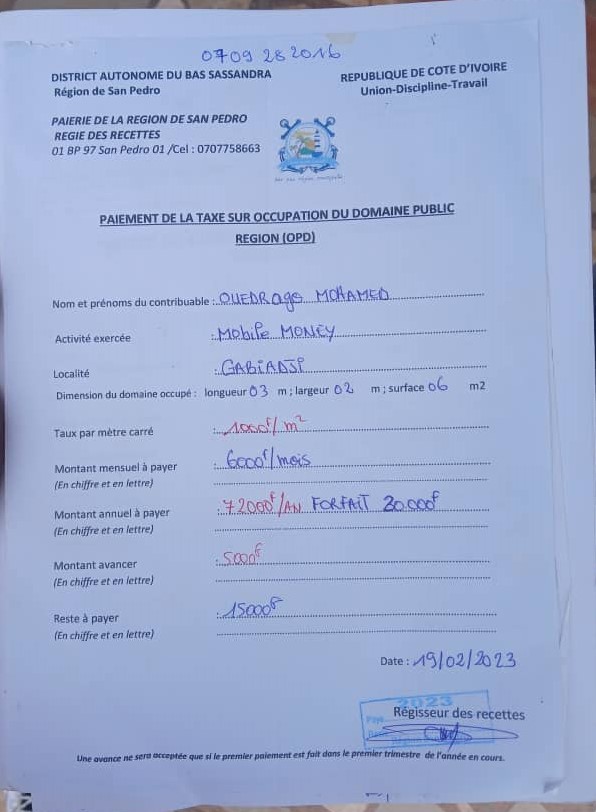 0709 28 2016
DISTRICT AUTONOME DU BAS SASSANDRA
Région de San Pedro
REPUBLIQUE DE COTE D'IVOIRE
Union-Discipline-Travail
PAIERIE DE LA REGION DE SAN PEDRO
REGIE DES RECETTES
01 BP 97 San Pedro 01 /Cel : 0707758663
PAIEMENT DE LA TAXE SUR OCCUPATION DU DOMAINE PUBLIC
REGION (OPD)
Nom et prénoms du contribuable : OUEDRAgo MOHAMED
Activité exercée : MobiPe MONEY
Localité : GABIADJI
Dimension du domaine occupé : longueur 03 m ; largeur 02 m ; surface 06 m2
Taux par mètre carré : 1000f/m²
Montant mensuel à payer : 6000f/mois
(En chiffre et en lettre)
Montant annuel à payer : 72000f/AN FORFAIT 20.000f
(En chiffre et en lettre)
Montant avancer : 5000f
(En chiffre et en lettre)
Reste à payer : 15000f
(En chiffre et en lettre)
Date : 19/02/2023
2023
Régisseur des recettes
Une avance ne sera acceptée que si le premier paiement est fait dans le premier trimestre de l'année en cours.